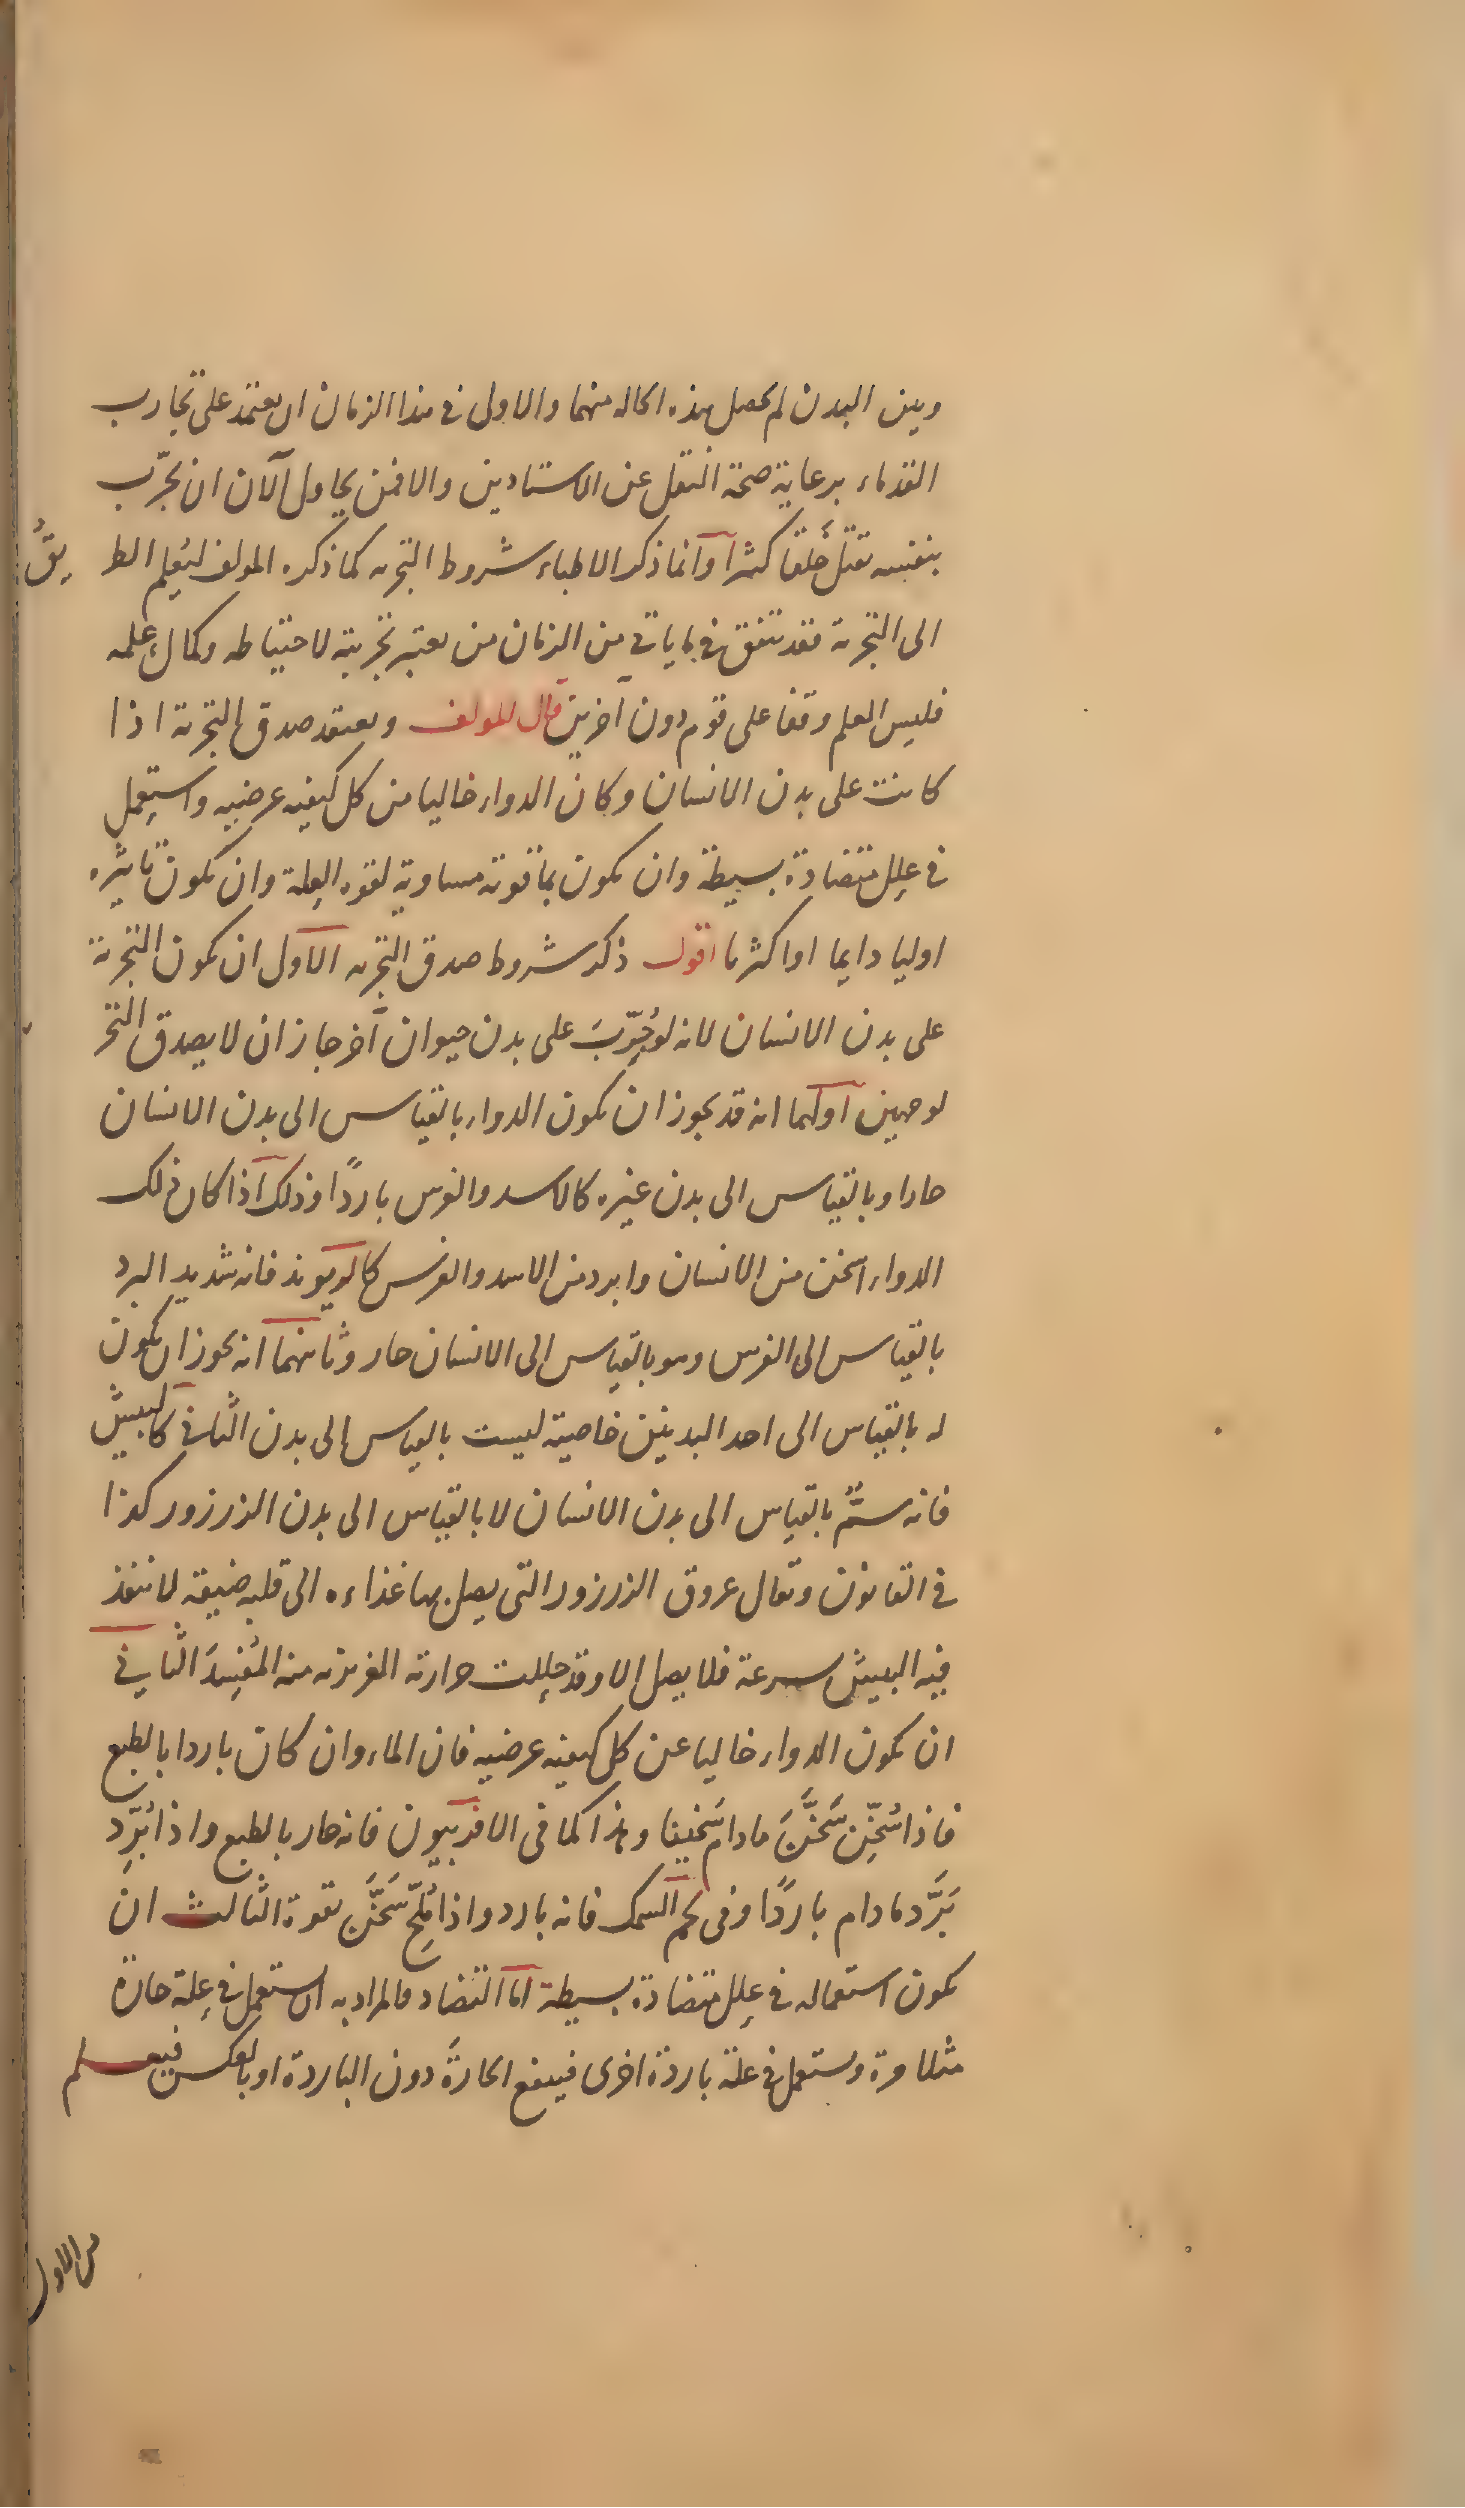 وبين البدن لم يحصل هذه الحاله منهما والاولى فى هذا الزمان ان يعتمد على تجارب
القدماء برعاية صحة النقل عن الاستادين والا فمن يحاول الآن ان يجرّب
بنفسه يقتل خلقا كثيرا وانما ذكر الاطباء شروط التجربه كما ذكره المولف ليُعلم الطريقُ
الى التجربة فقد يتفق فيما ياتى من الزمان من يعتبر تجربته لاحتياطه وكمال علمه
فليس العلم وقفا على قوم دون آخرين قال المولف ويعتقد صدق التجربة اذا
كانت على بدن الانسان وكان الدواء خاليا من كل كيفيه عرضيه واستعمل
فى علل متضادة بسيطة وان يكون بما قوته مساوية لقوه العلة وان يكون تاثيره
اوليا دايما او اكثريا اقول ذكر شروط صدق التجربه الاول ان يكون التجربة
على بدن الانسان لانه لو جُرّبَ على بدن حيوان آخر جاز ان لا يصدق التجر
لوجهين اولهما انه قد يجوز ان يكون الدواء بالقياس الى بدن الانسان
حارا وبالقياس الى بدن غيره كالاسد والفرس باردًا وذلك اذا كان ذلك
الدواء اسخن من الانسان وابرد من الاسد والفرس كالريوند فانه شديد البرد
بالقياس الى الفرس وهو بالقياس الى الانسان حار وثانيهما انه يجوز ان يكون
له بالقياس الى احد البدنين خاصية ليست بالقياس الى بدن الثانى كالبيش
فانه سمٌّ بالقياس الى بدن الانسان لا بالقياس الى بدن الزرزور كذا
فى القانون ويقال عروق الزرزور التى يصل بها غذاءه الى قلبه ضيقة لا تنفذ
فيه البيش بسرعة فلا يصل الا وقد حللت حرارته الغريزيه منه المُفسِدَ الثانى
ان يكون الدواء خاليا عن كل كيفيه عرضيه فان الماء وان كان باردا بالطبع
فاذا سُخّن سَخَّنَ مادام سَخينا وهذا كما فى الافربيون فانه حار بالطبع واذا بُرِّد
بَرَّد مادام باردًا وفى لحم السمك فانه بارد واذا مُلِّح سَخَّنَ بقوة الثالث ان
يكون استعماله فى علل متضادة بسيطة اما التضاد فالمراد به ان يستعمل فى علة حارة
مثلا مرة ويستعمل فى علة باردة اخرى فينفع الحارةَ دون الباردة او بالعكس فيعلم
من الاول